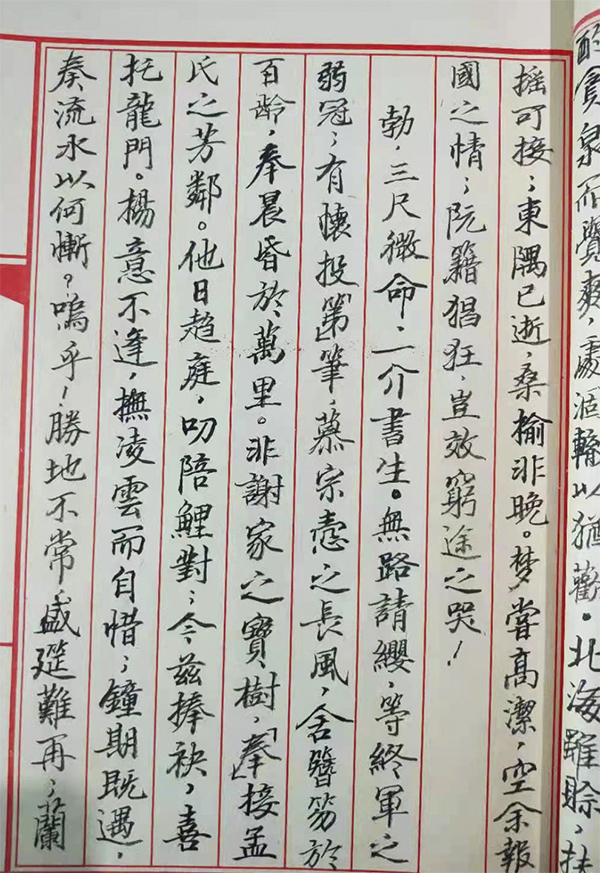 酌貪泉而覺爽，處涸轍以猶歡。北海雖賒，扶
摇可接；東隅已逝，桑榆非晚。梦嘗高潔，空余報
國之情；阮籍猖狂，豈效窮途之哭！
勃，三尺微命，一介書生。無路請纓，等終軍之
弱冠；有懷投「第」筆，慕宗慤之長風，舍簪笏於
百齡，奉晨昏於萬里。非謝家之寶樹，「奉」接孟
氏之芳鄰。他日趨庭，叨陪鯉對；今兹捧袂，喜
托龍門。楊意不逢，撫凌雲而自惜；鐘期既遇，
奏流水以何慚？嗚乎！勝地不常，盛筵難再；蘭